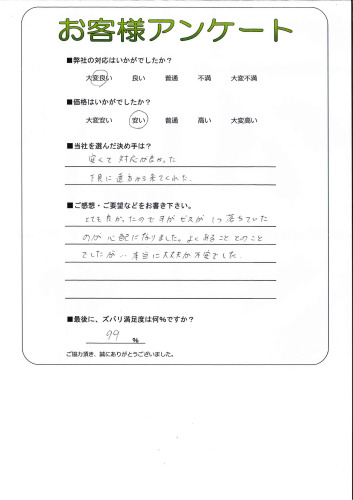 お客様アンケート
■弊社の対応はいかがでしたか？
大変良い 良い 普通 不満 大変不満
■価格はいかがでしたか？
大変安い 安い 普通 高い 大変高い
■当社を選んだ決め手は？
安くて 対応が良かった
下見に遠方から来てくれた
■ご感想・ご要望などをお書き下さい。
とても良かったのですがビスが1つ落ちていた
のが心配になりました。よくあることとのこと
でしたが… 本当に大丈夫か不安でした.
■最後に、ズバリ満足度は何%ですか？
99 %
ご協力頂き、誠にありがとうございました。